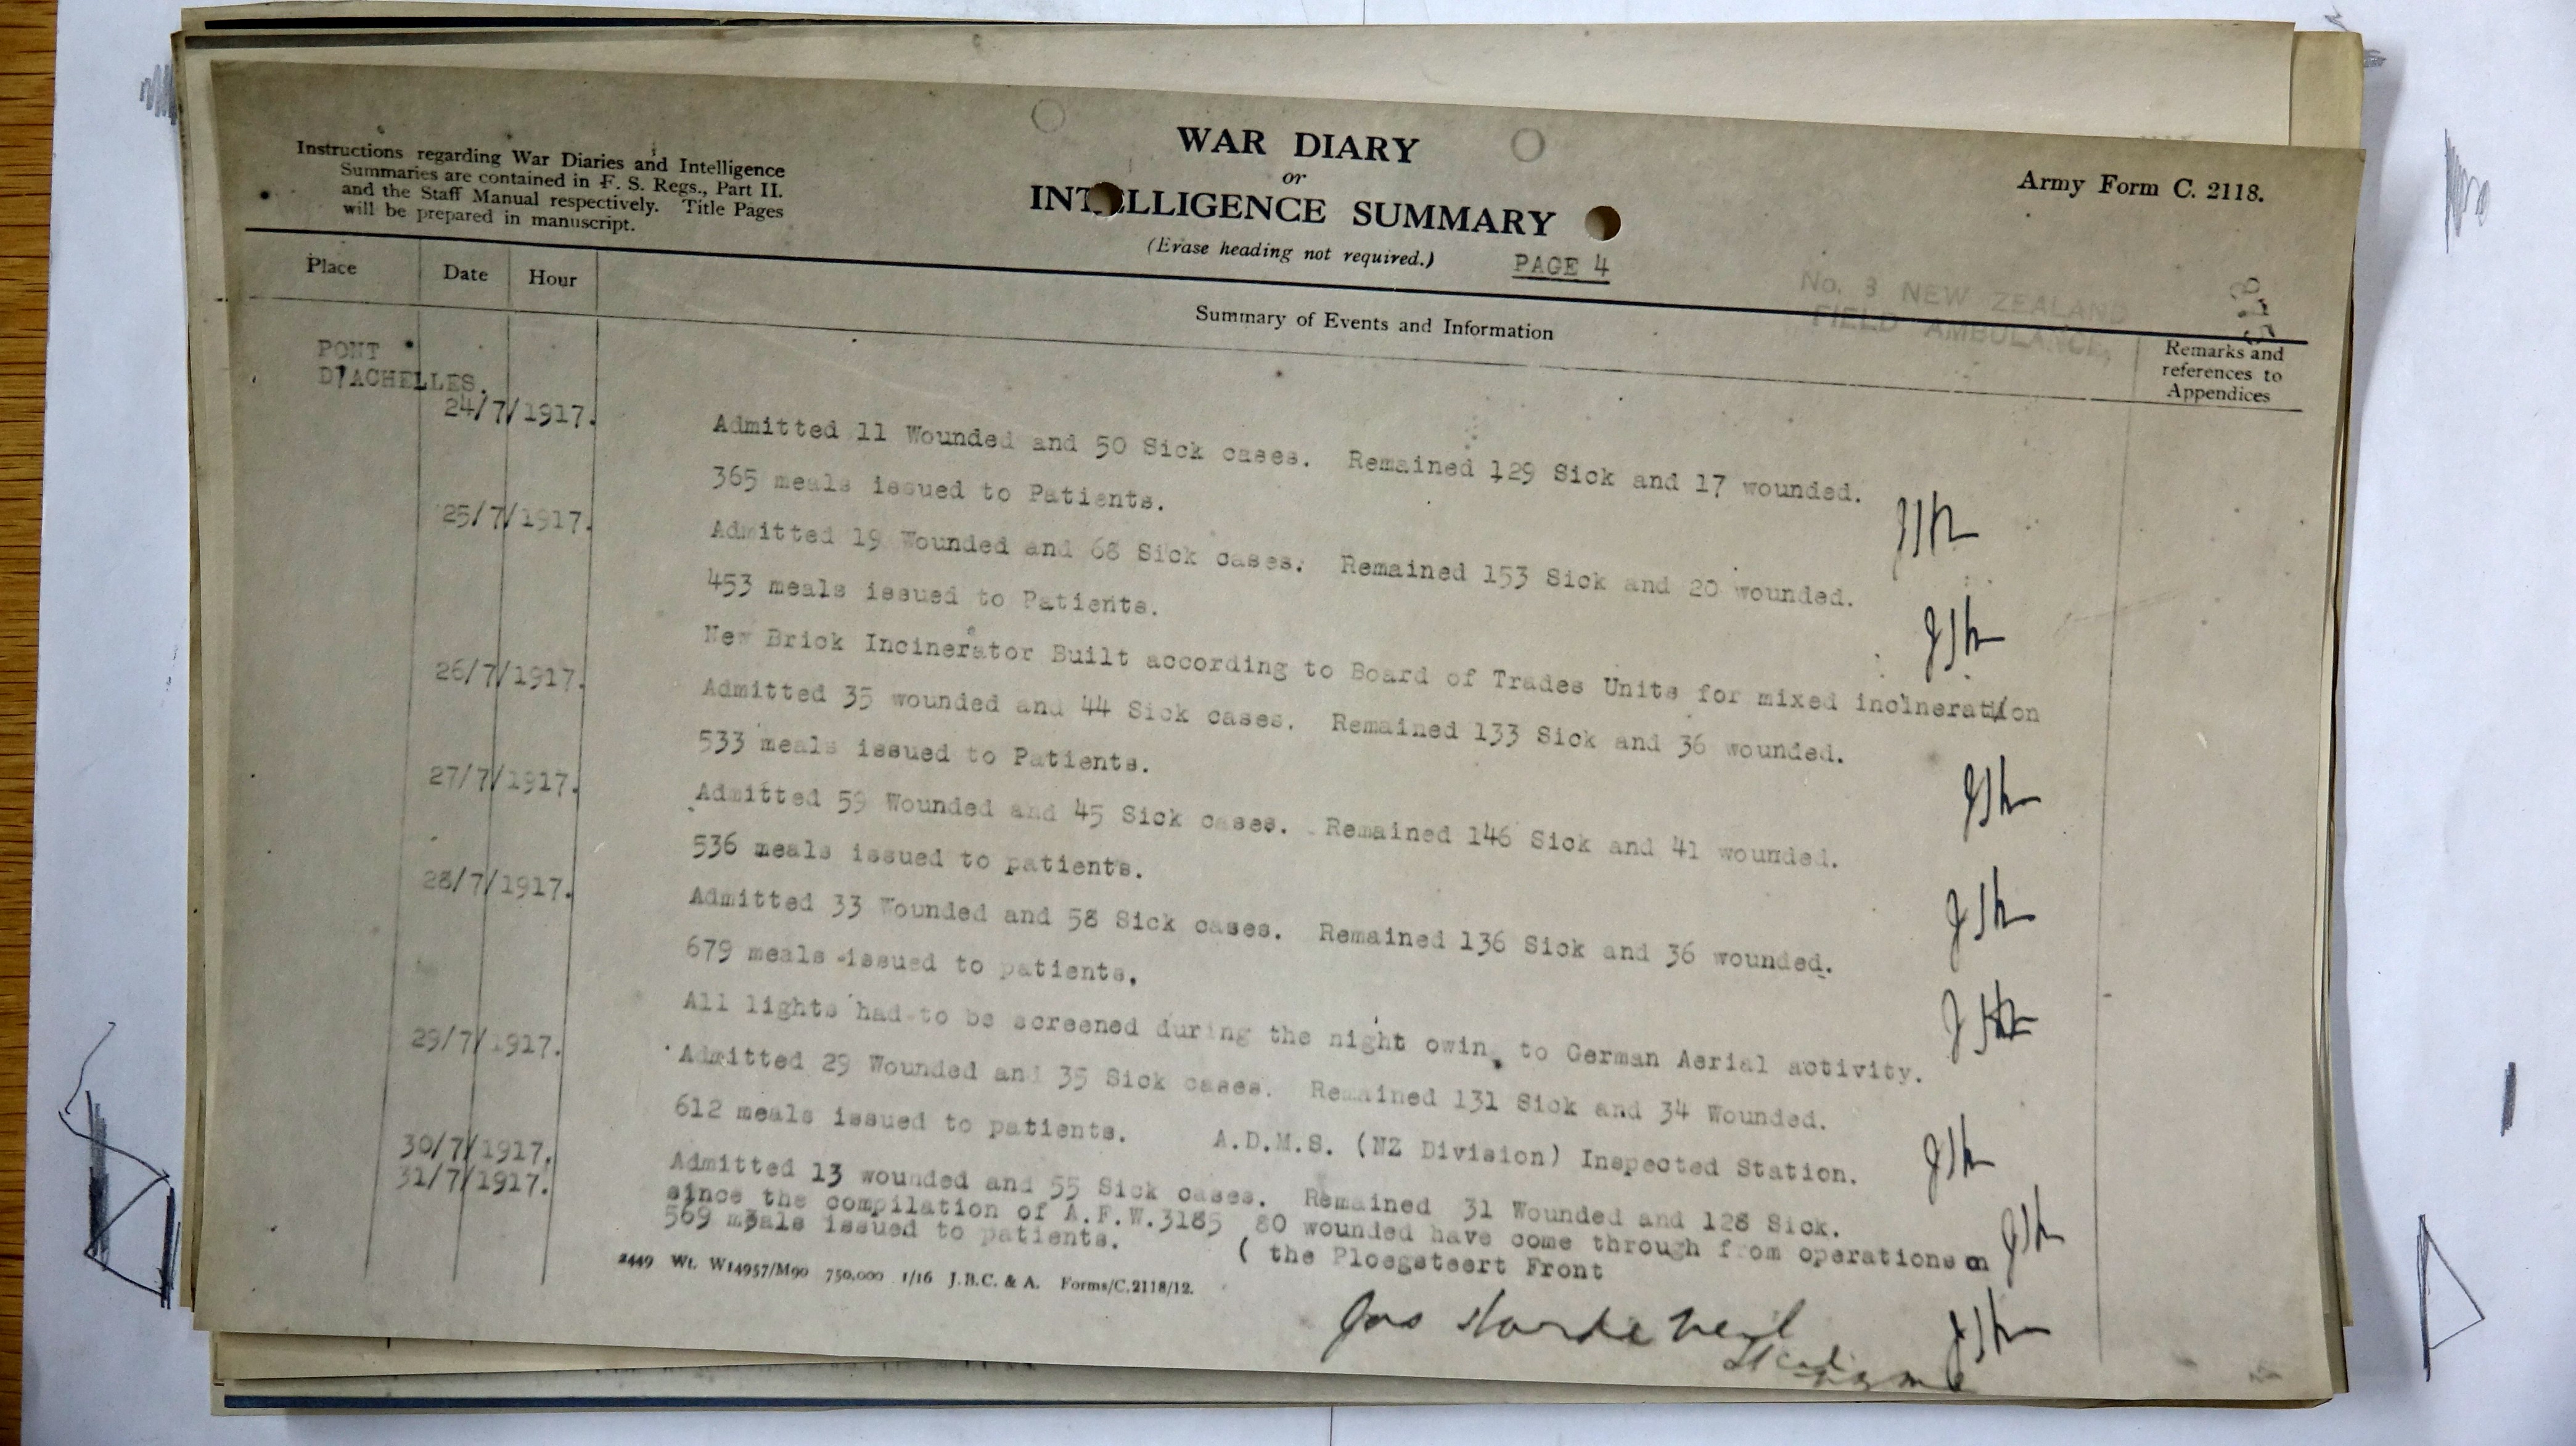 Instructions regarding War Diaries and Intelligence
Summaries are contained in F. S. Regs., Part II.
and the Staff Manual respectively. Title Pages
will be prepared in manuscript.
WAR DIARY
or
INTELLIGENCE SUMMARY
(Erase heading not required.)
PAGE 4
Army Form C. 2118.
No. 3 NEW ZEALAND
FIELD AMBULANCE,
Place
Date
Hour
Summary of Events and Information
Remarks and
references to
Appendices
PONT
D'ACHELLES.
24/7/1917.
Admitted 11 Wounded and 50 Sick cases. Remained 129 Sick and 17 wounded.
365 meals issued to Patients.
25/7/1917.
Admitted 19 Wounded and 68 Sick cases. Remained 153 Sick and 20 wounded.
453 meals issued to Patients.
New Brick Incinerator Built according to Board of Trades Units for mixed incineration
26/7/1917.
Admitted 35 wounded and 44 Sick cases. Remained 133 Sick and 36 wounded.
533 meals issued to Patients.
27/7/1917.
Admitted 59 Wounded and 45 Sick cases. Remained 146 Sick and 41 wounded.
536 meals issued to patients.
28/7/1917.
Admitted 33 Wounded and 58 Sick cases. Remained 136 Sick and 36 wounded.
679 meals issued to patients.
All lights had to be screened during the night owin to German Aerial activity.
29/7/1917.
Admitted 29 Wounded and 35 Sick cases. Remained 131 Sick and 34 Wounded.
612 meals issued to patients. A.D.M.S. (NZ Division) Inspected Station.
30/7/1917.
Admitted 13 wounded and 55 Sick cases. Remained 31 Wounded and 128 Sick.
31/7/1917.
since the compilation of A.F.W.3185 80 wounded have come through from operations on
569 meals issued to patients. ( the Ploegsteert Front
2449 Wt. W14957/M90 750,000 1/16 J.B.C. & A. Forms/C.2118/12.